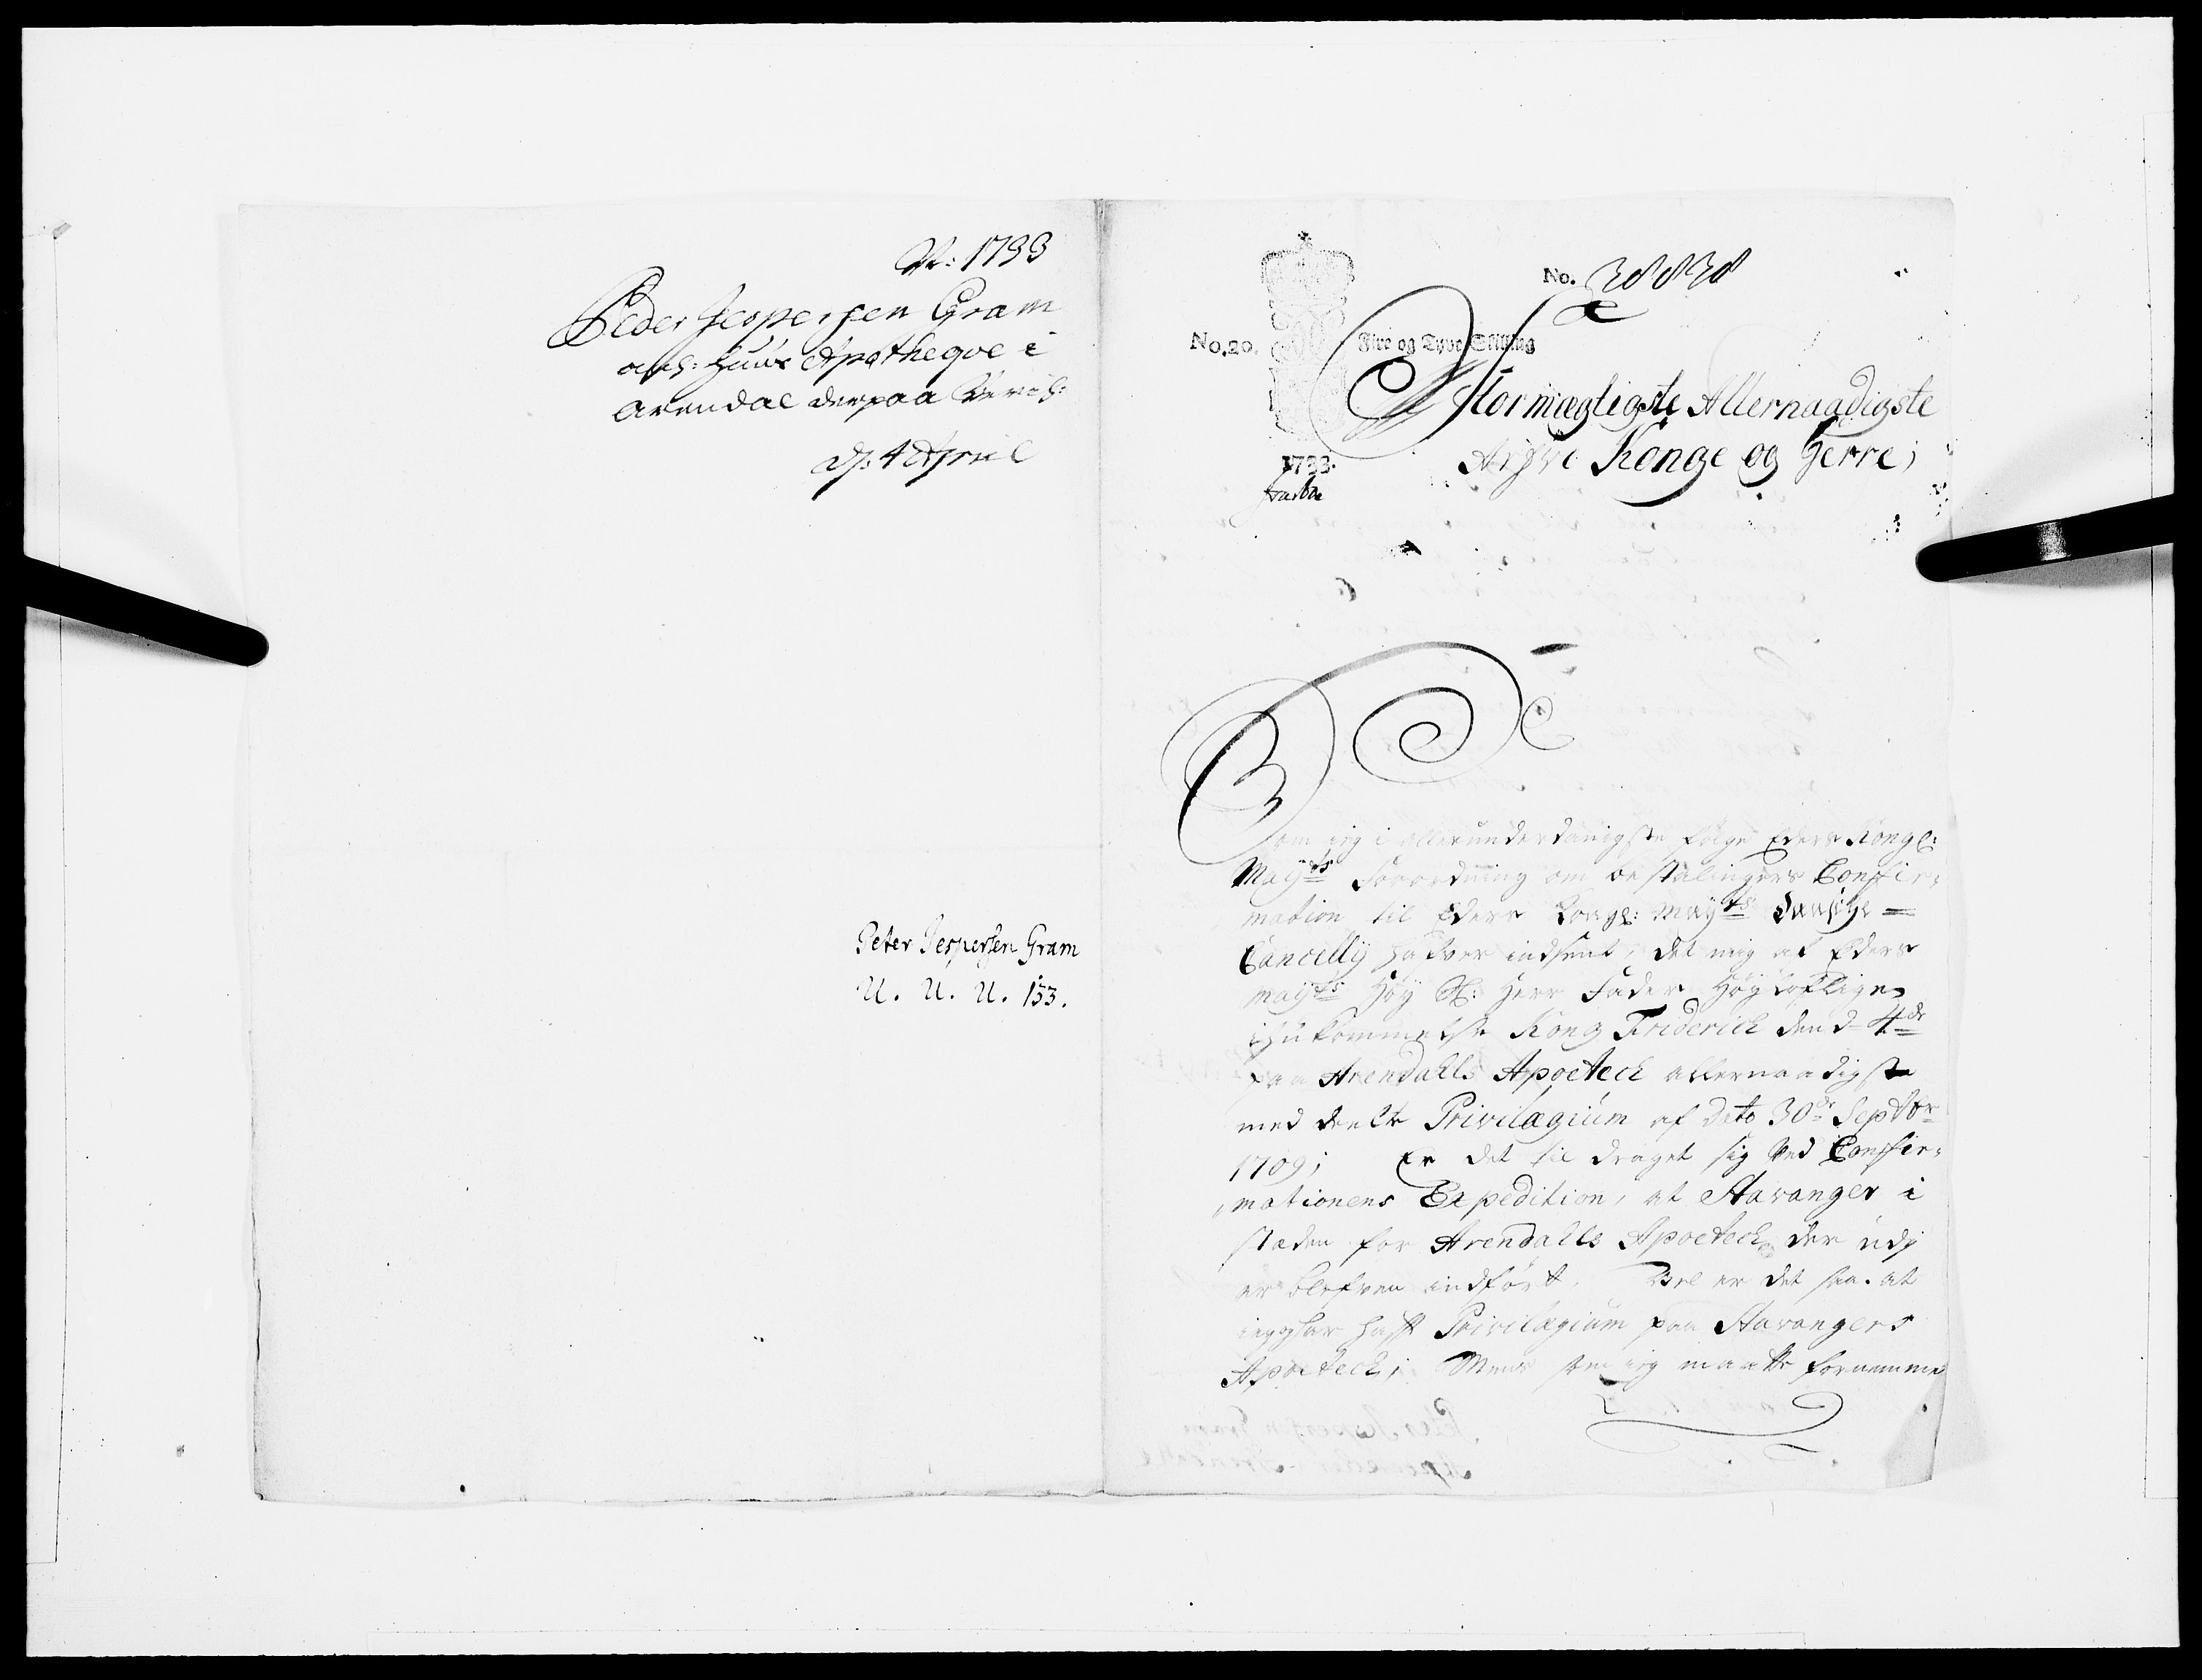 Nr: 1733
Peder Jespersen Gram
anl: hans Apotheqve i
Arendal derpaa
d: 4 April
Peter Jespersen Gram
U. U. U. 133.
No. 38838
No. 20.
Fire og Tyve Skilling
1733.
Stormægtigste Allernaadigste
Arfve Konge og Herre;
Som jeg i allerunderdanigste følge Eders Kongl:
Mayts Forordning om bestalingers Confir-
mation til Eders Kongl: Mayts Danske
Cancelly hafver indsent, det mig af Eders
Mayts Høy Sl: Herr Fader Høylofligen
ihukommelse Kong Friderich den 4de
paa Arendalls Apoeteck allernaadigste
med deelte Privilægium af dato 30de Septbr
1709; Er det til draget sig ved Confir-
mationens Expedition, at Stavanger i
stæden for Arendalls Apoeteck der udj
er blefven indført. Vel er det saa at
jeg har haft Privilægium paa Stavangers
Apoeteck; Mens som jeg maatte fornemme